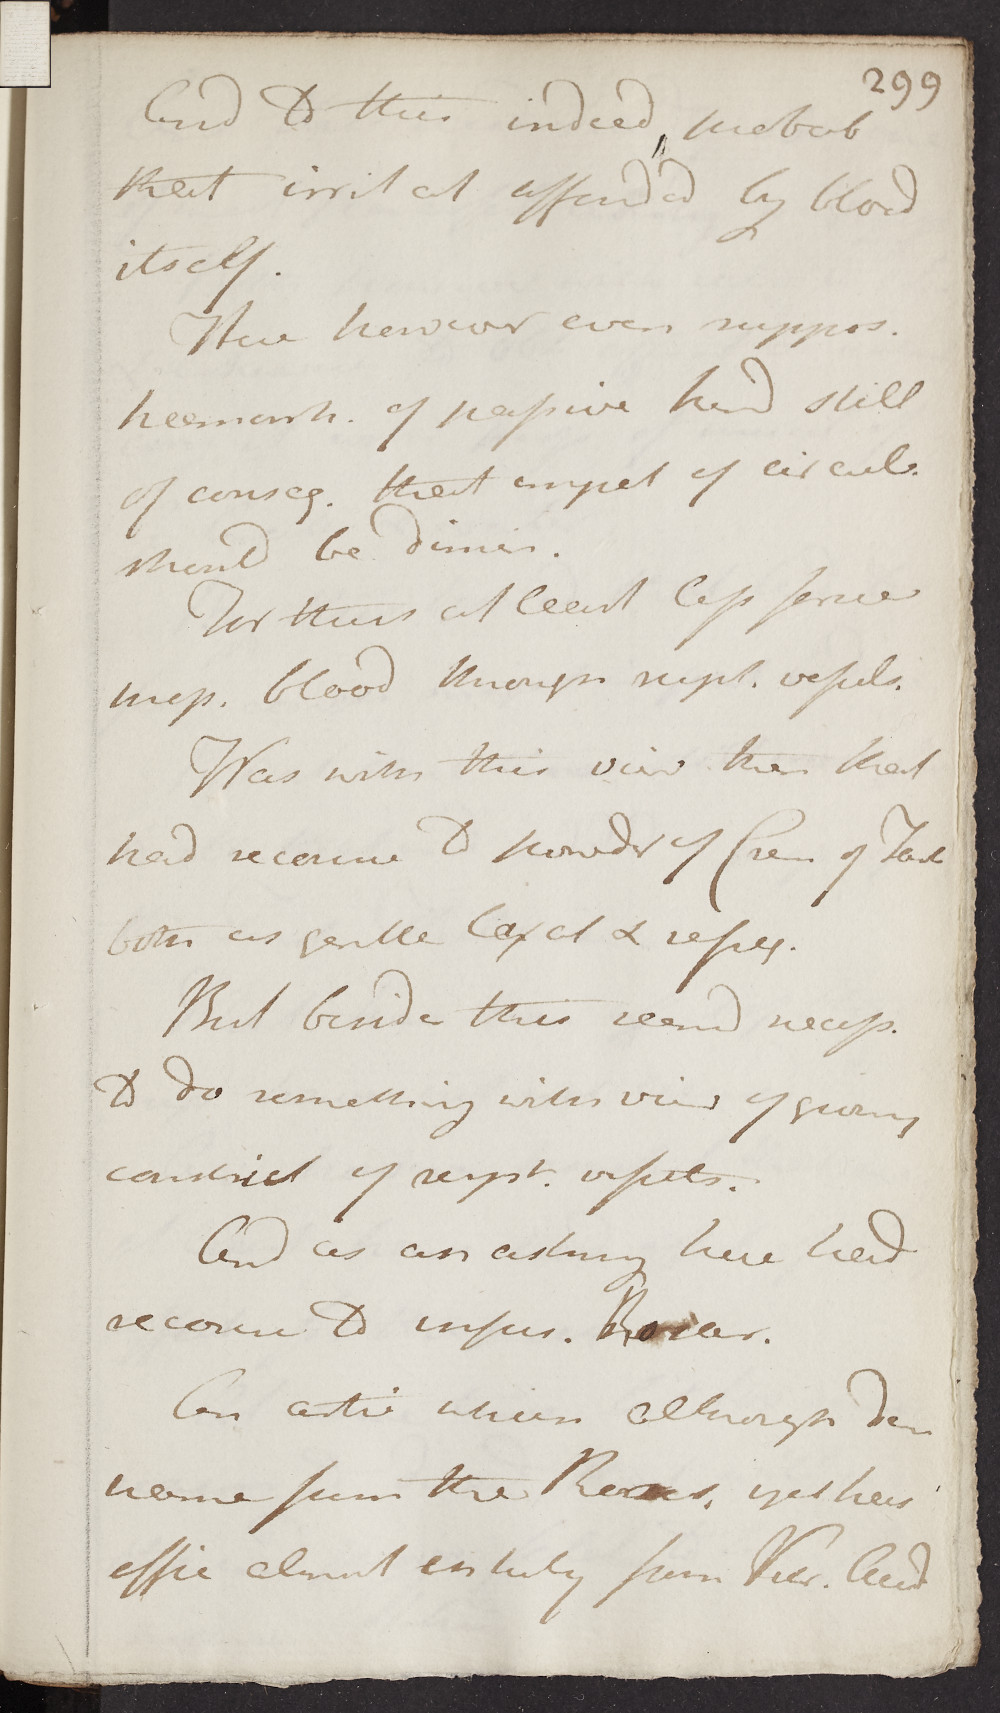 299
And to this indeed, probab
that irritat afforded by blood
itself.
Here however even suppos.
heemorrh. of passive kind still
of conseq. that impet of circul.
should be dimin.
For thus at least less force
imp. blood through rupt. vessels.
Was with this view then that
had recourse to powder of Crem of Tart
both as gentle laxat & refrig.
But beside this seemd necess.
to do something with view of giving
constrict of rupt. vessels.
And as an astring here had
recourse to infus. Rosar.
An artic which although den
name from the Roses, yet has
effic almost entirely from Vitr. Acid